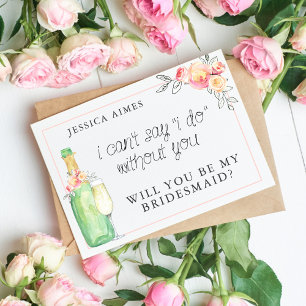 JESSICA AIMES
i can't say "i do"
without you
WILL YOU BE MY
BRIDESMAID?